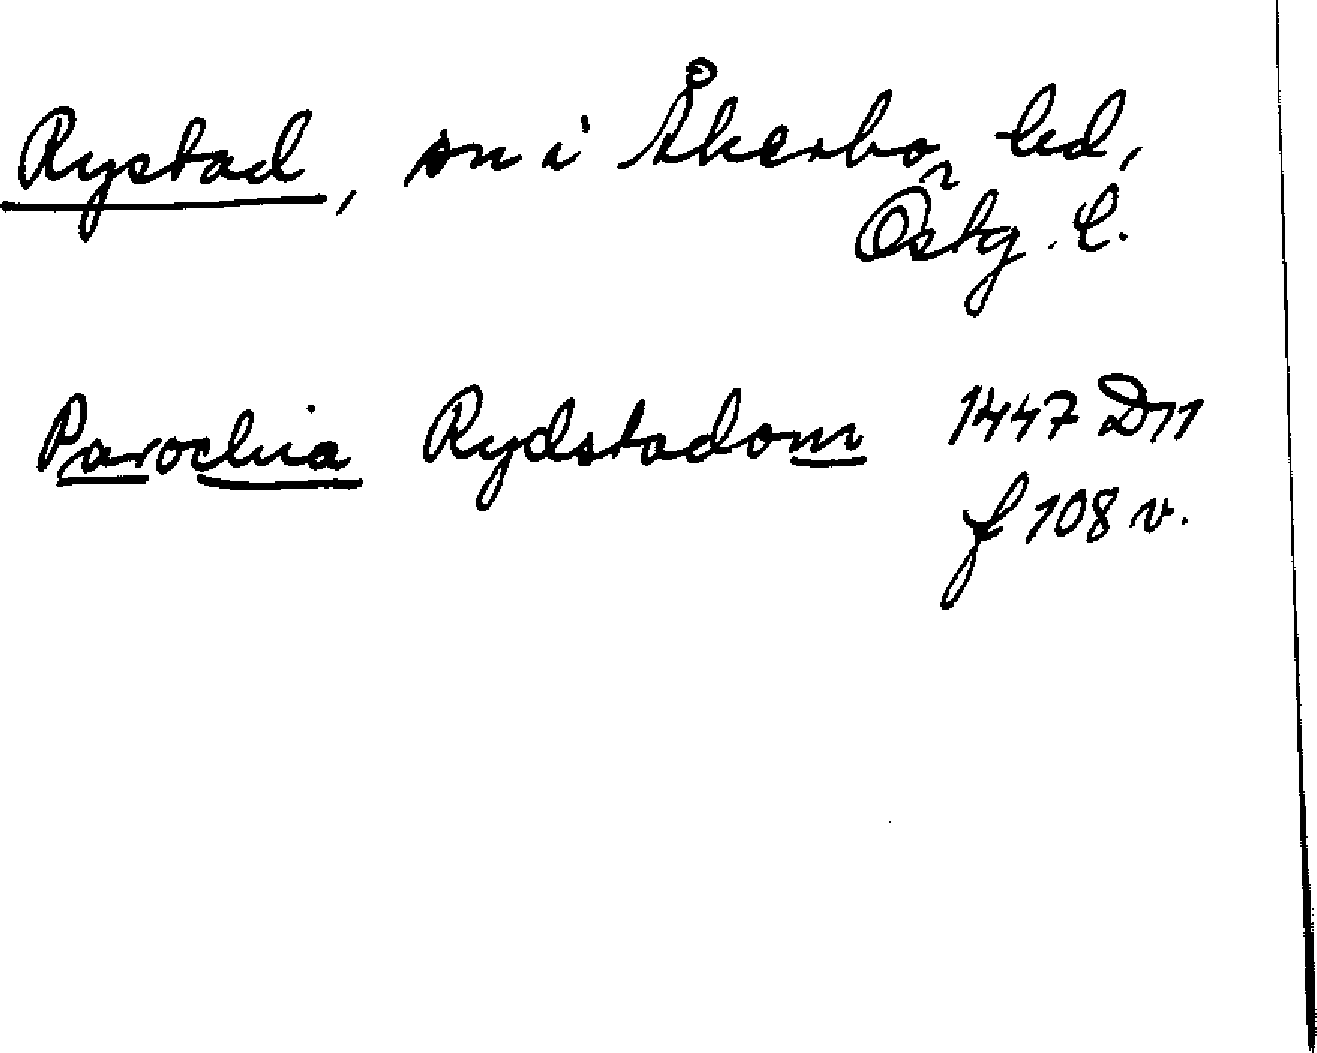 Rystad, sn i Åkerbo hd,
Östg. L.
Parochia Rydstadom 1447 D11
f 108 v.